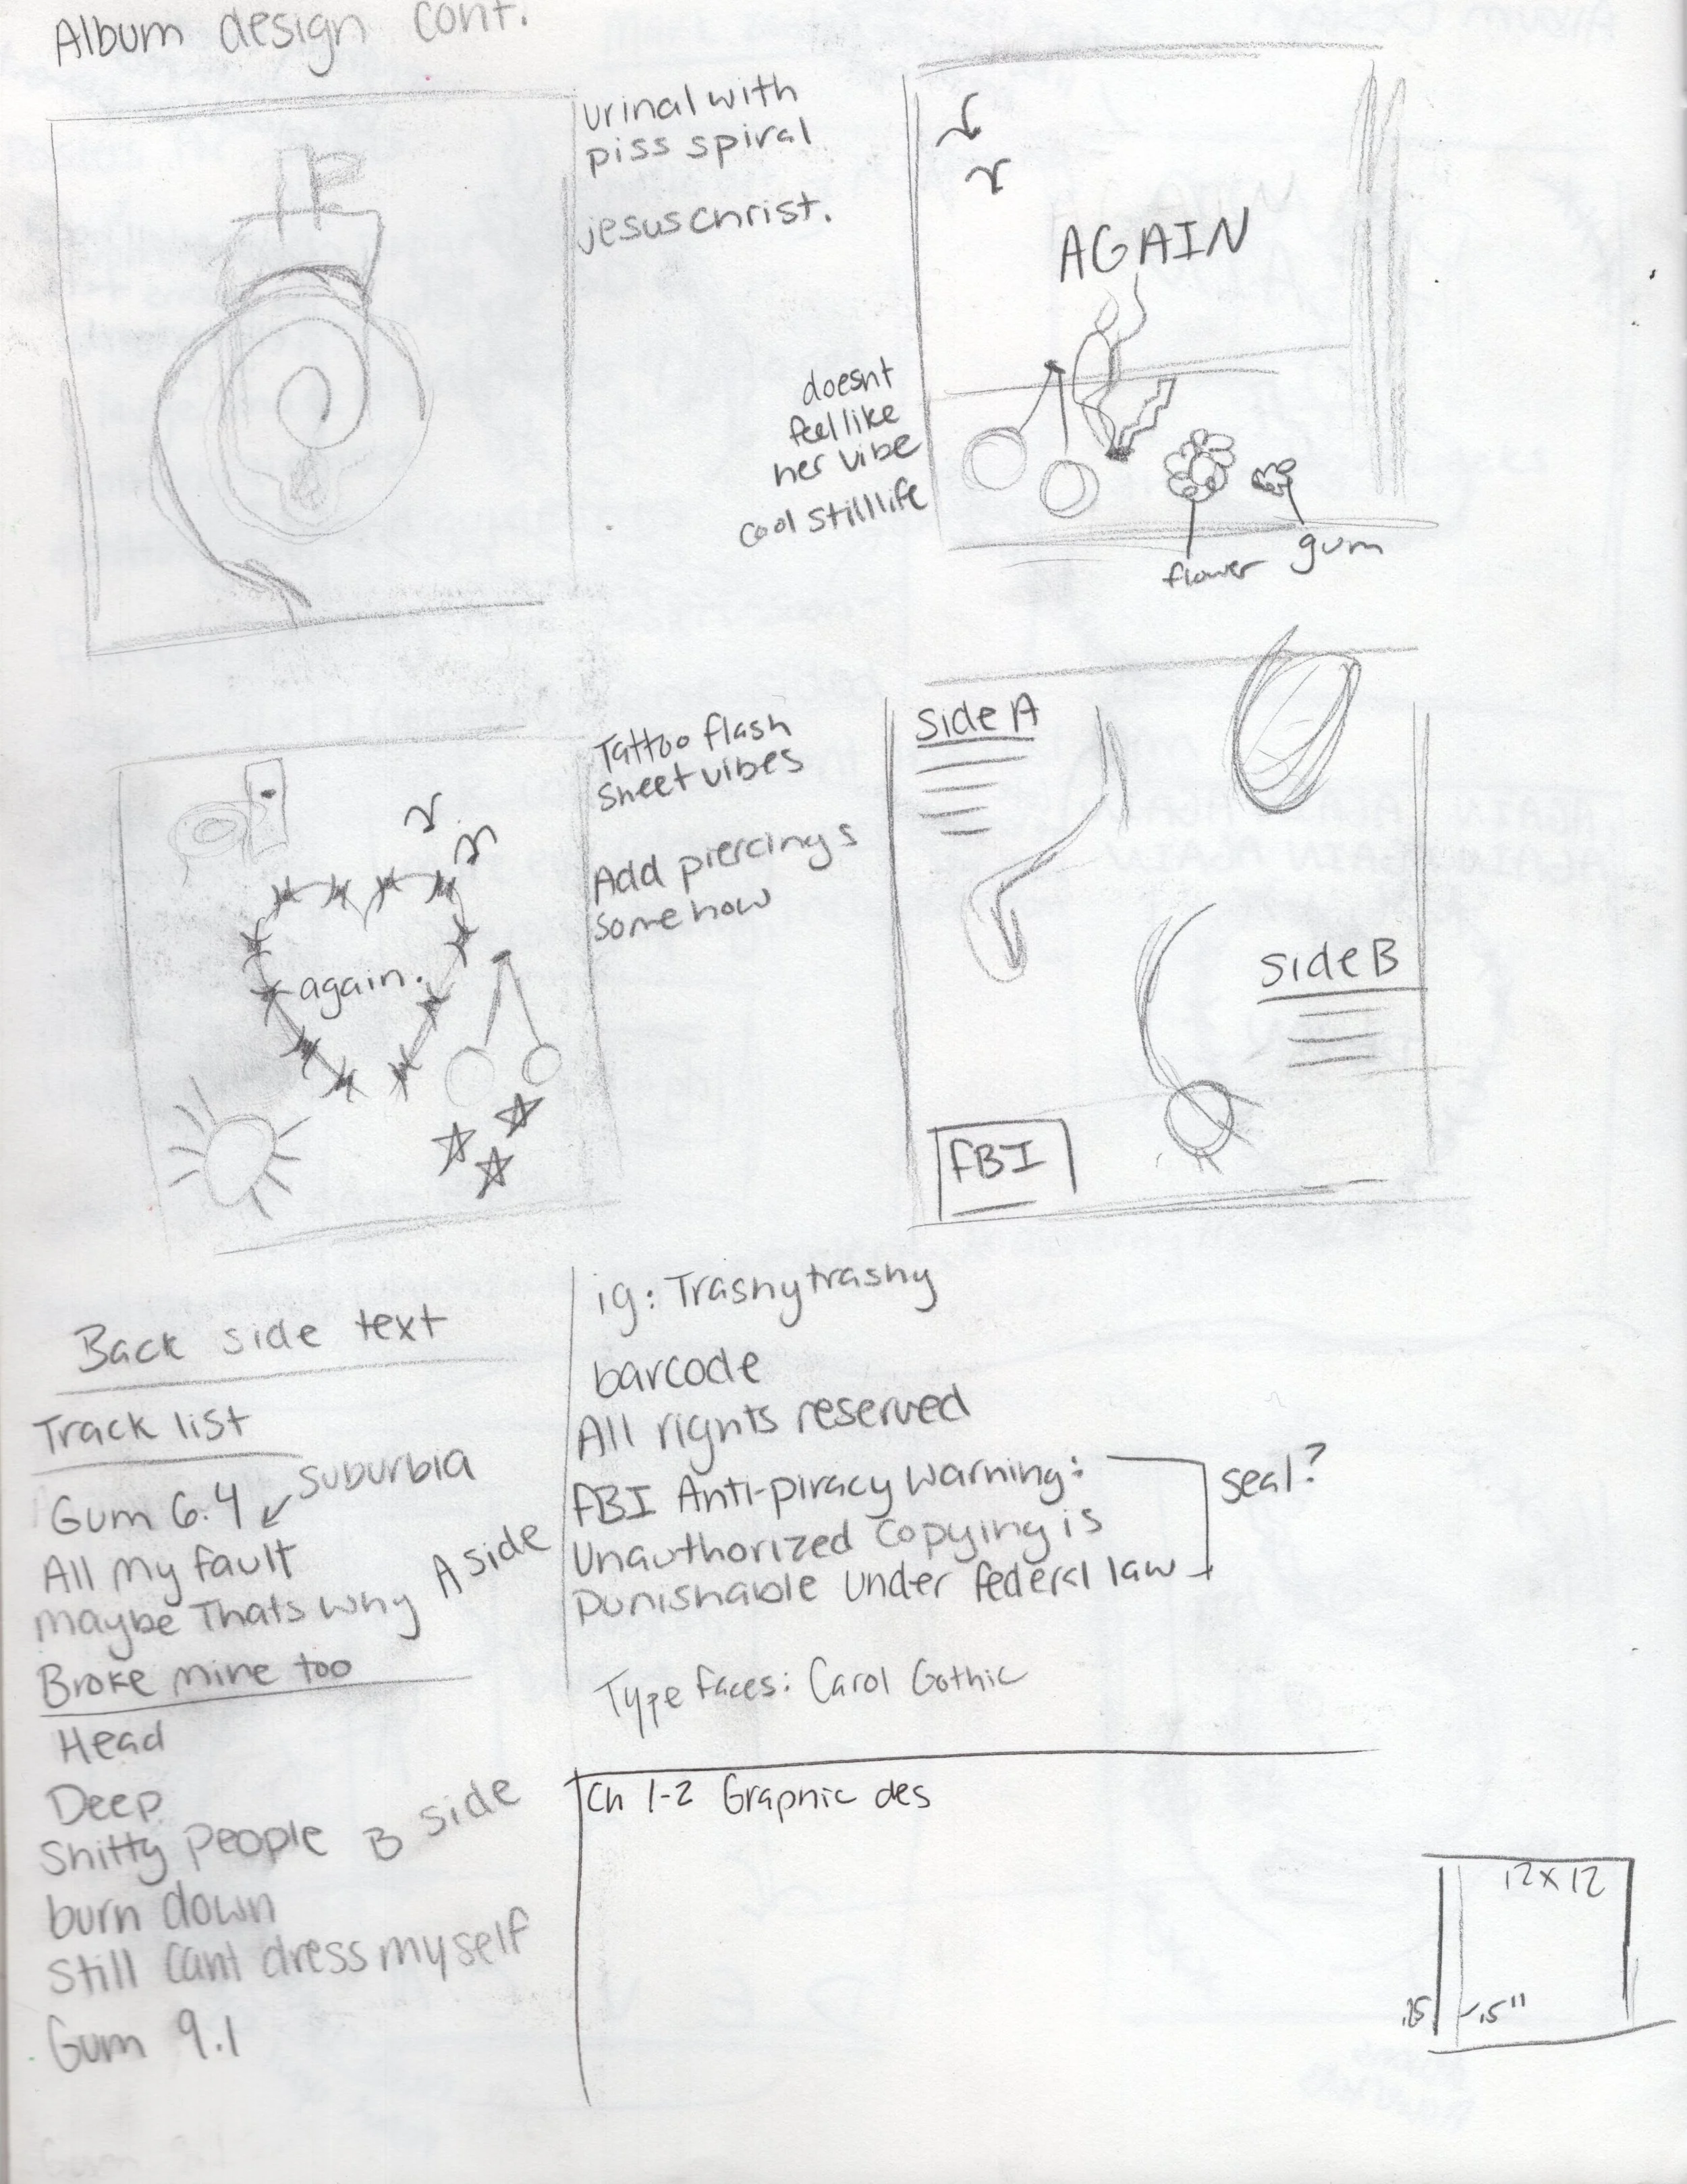 Album design cont.
urinal with
piss spiral
jesus christ.
AGAIN
doesnt
feel like
her vibe
cool still life
flower
gum
Tattoo flash
sheet vibes
Add piercings
somehow
again.
Side A
Side B
FBI
Back side text
Track list
Suburbia
Gum 6.4
All my fault
maybe Thats why
A side
Broke mine too
Head
Deep
Shitty people
B side
burn down
Still cant dress myself
Gum 9.1
ig: Trashytrashy
barcode
All rights reserved
FBI Anti-piracy warning:
Unauthorized copying is
punishable under federal law
seal?
Type faces: Carol Gothic
Ch 1-2 Graphic des
12x12
.25
.5"